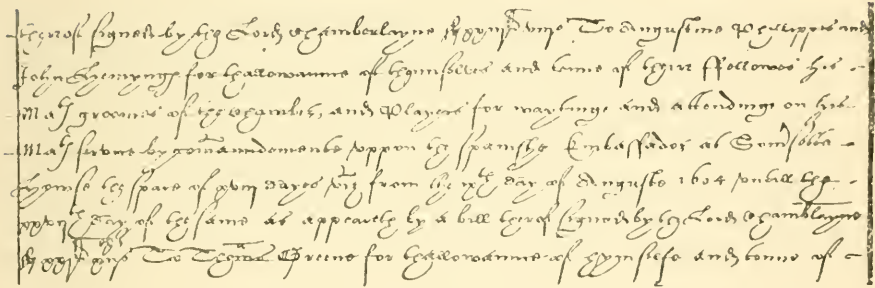 thereof signed by the Lord Chamberlayne To Augustine Phillippes and
John Hemynges for thallowaunce of themselves and tenne of theire ffellowes his
Mats groomes of the chamber, and Players for waytinge and attendinge on his
Mats service by comaundemente uppon the Spanishe Embassador at Somersette
howse the space of xviij dayes viz from the ixth day of Auguste 1604 untill the
xxvijth day of the same as appeareth by a bill thereof signed by the Lord Chamblayne
To Thomas Greene for thallowaunce of hymselfe and tenne of